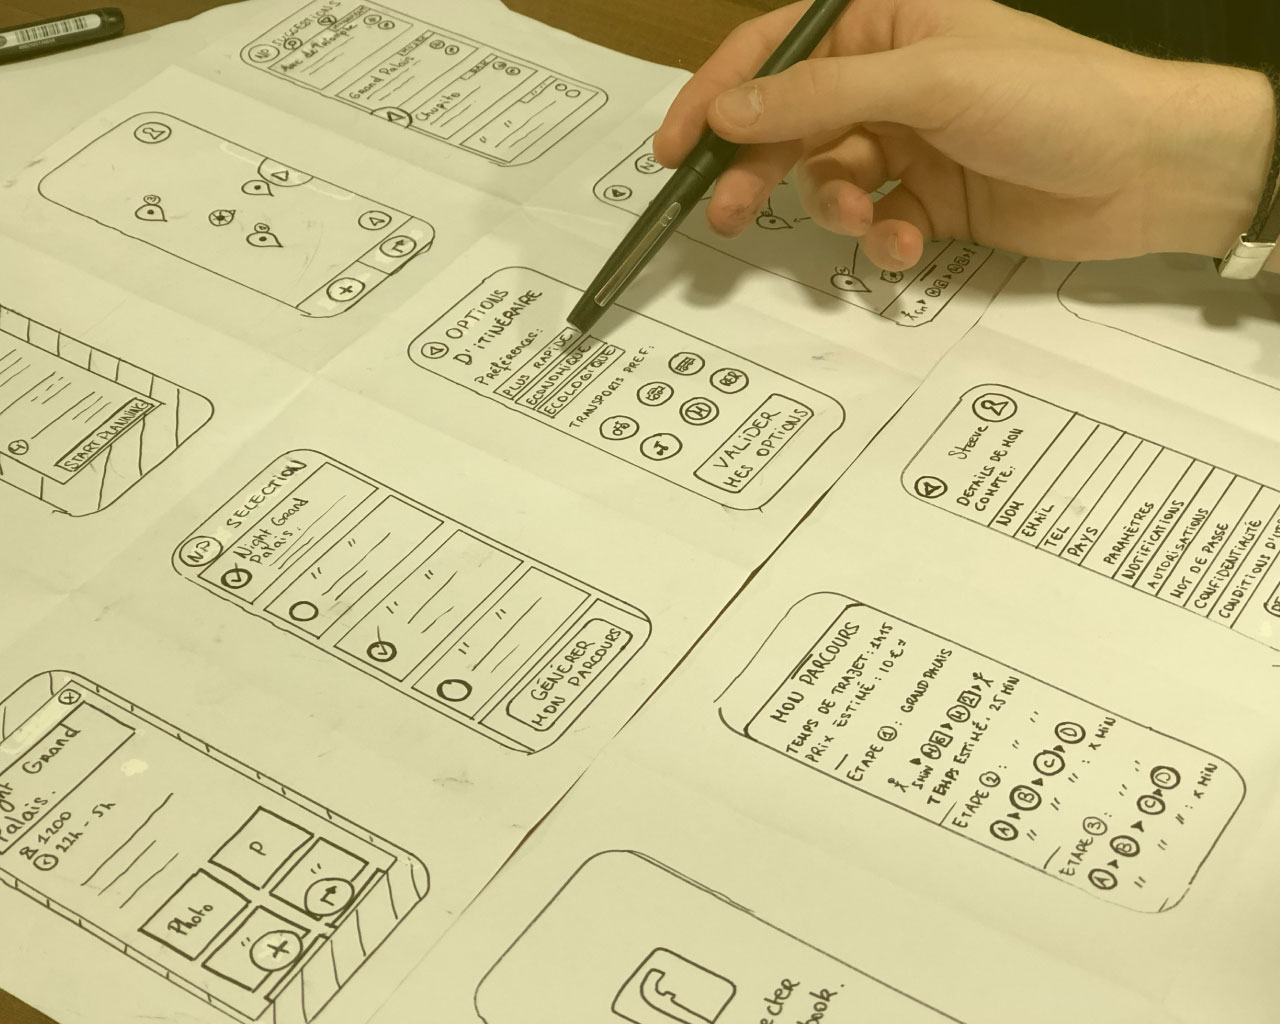 NP SUGGESTIONS
Arc de Triomphe
Grand Palais
Chupito
NP
OPTIONS
D'ITINÉRAIRE
Préférences:
PLUS RAPIDE
ECONOMIQUE
ECOLOGIQUE
TRANSPORTS PREF:
RER
M
VALIDER
MES OPTIONS
START PLANNING
NP SELECTION
Night Grand
Palais.
GÉNÉRER
MON PARCOURS
Steeve
DETAILS DE MON
COMPTE:
NOM
EMAIL
TEL
PAYS
PARAMÈTRES
NOTIFICATIONS
AUTORISATIONS
MOT DE PASSE
CONFIDENTIALITÉ
CONDITIONS
MON PARCOURS
TEMPS DE TRAJET: 1h15
PRIX ESTIMÉ: 10€
ETAPE 1: GRAND PALAIS
5MIN
TEMPS ESTIMÉ. 25 MIN
ETAPE 2: " "
A B C D
" " ": X MIN
ETAPE 3: " "
A B C D
" " ": X MIN
Grand
Palais.
1200
22h - 5h
P
Photo
f